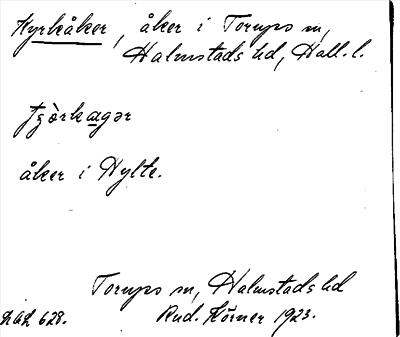 Kyrkåker, åker i Torups sn,
Halmstads hd, Hall. l.
åker i Hylte.
Torups sn, Halmstads hd
628. Rud. Körner 1923.